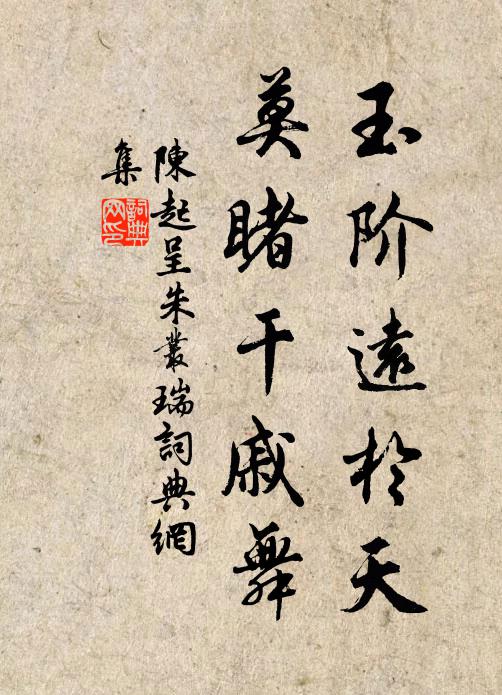 玉阶遠於天
莫睹干戚舞
陳起呈朱叢瑞詞典網
集
詞典網印